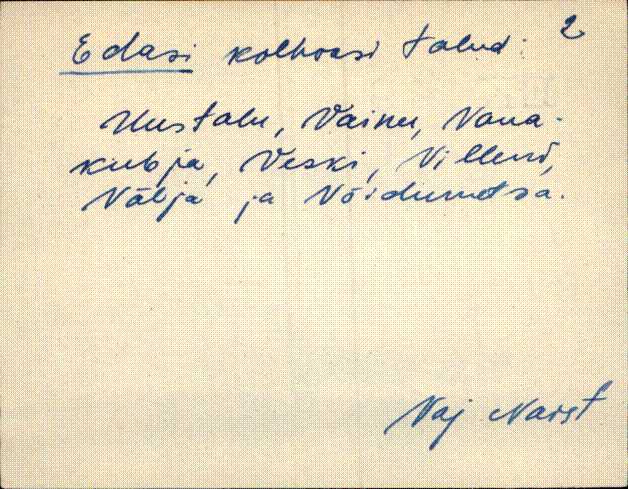 Edasi kolhoosi talud: 2
Uustalu, Vainu, Vana-
kubja, Veski, Villemi,
Välja ja Võidumetsa.
Naist